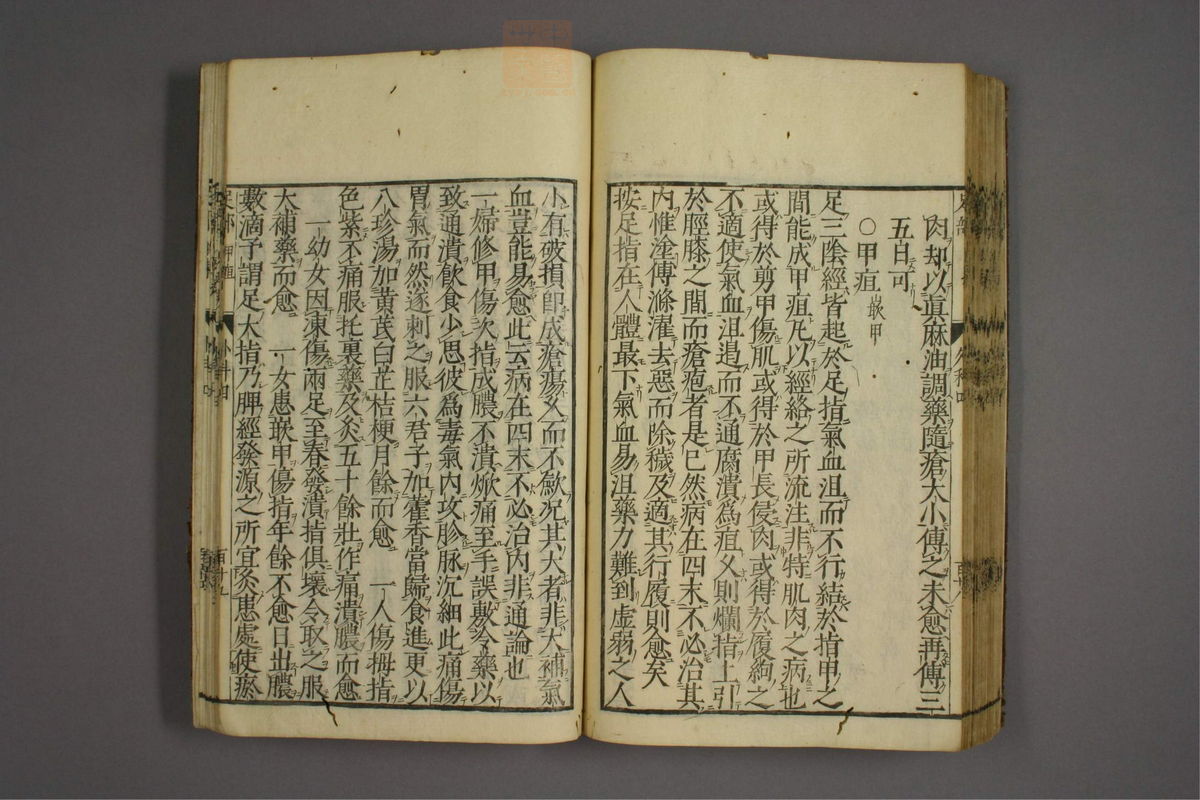 肉却以眞麻油調藥隨瘡大小傅之未愈再傅三
五日可
○甲疽 嵌甲
足三陰經皆起於足指氣血沮而不行結於指甲之
間能成甲疽尢以經絡之所流注非特肌肉之病也
或得於剪甲傷肌或得於甲長侵肉或得於履絇之
不適使氣血沮遏而不通腐潰爲疽久則爛指上引
於脛膝之間而瘡疱者是已然病在四末不必治其
内惟塗傅滌濯去惡而除穢及適其行履則愈矣
按足指在人體最下氣血易沮藥力難到虚弱之人
小有破損卽成瘡瘍久而不歛况其大者非大補氣
血豈能易愈此云病在四末不必治内非通論也
一婦修甲傷次指成膿不潰焮痛至手誤敷冷藥以
致通潰飲食少思彼爲毒氣内攻胗脉沉細此痛傷
胃氣而然遂刺之服六君子加藿香當歸食進更以
八珍湯加黄芪白芷桔梗月餘而愈 一人傷拇指
色紫不痛服托裏藥及灸五十餘壯作痛潰膿而愈
一幼女因凍傷兩足至春發潰指俱壞令取之服
大補藥而愈 一女患嵌甲傷指年餘不愈日出膿
數滴予謂足大指乃脾經發源之所宜灸患處使瘀